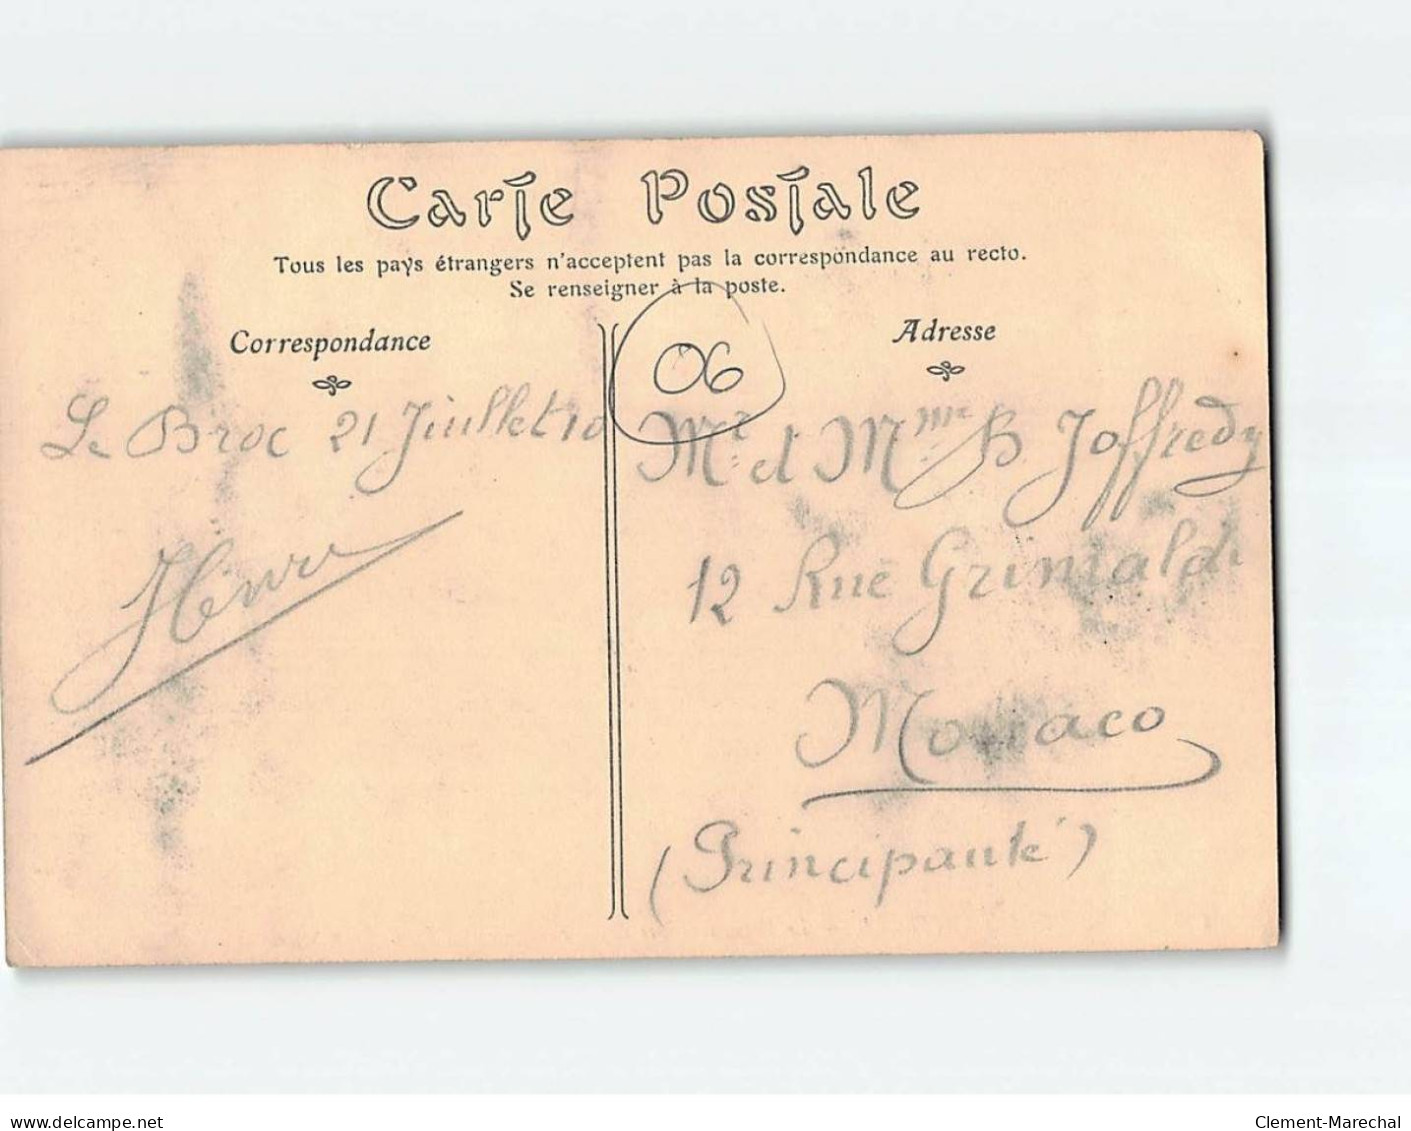 Carte Postale
Tous les pays étrangers n'acceptent pas la correspondance au recto.
Se renseigner à la poste.
Correspondance
Adresse
06
Le Broc 21 Juillet 10
Mr. et Mme B Joffredy
12 Rue Grimaldi
Monaco
(Principauté)
www.delcampe.net
Clement-Marechal